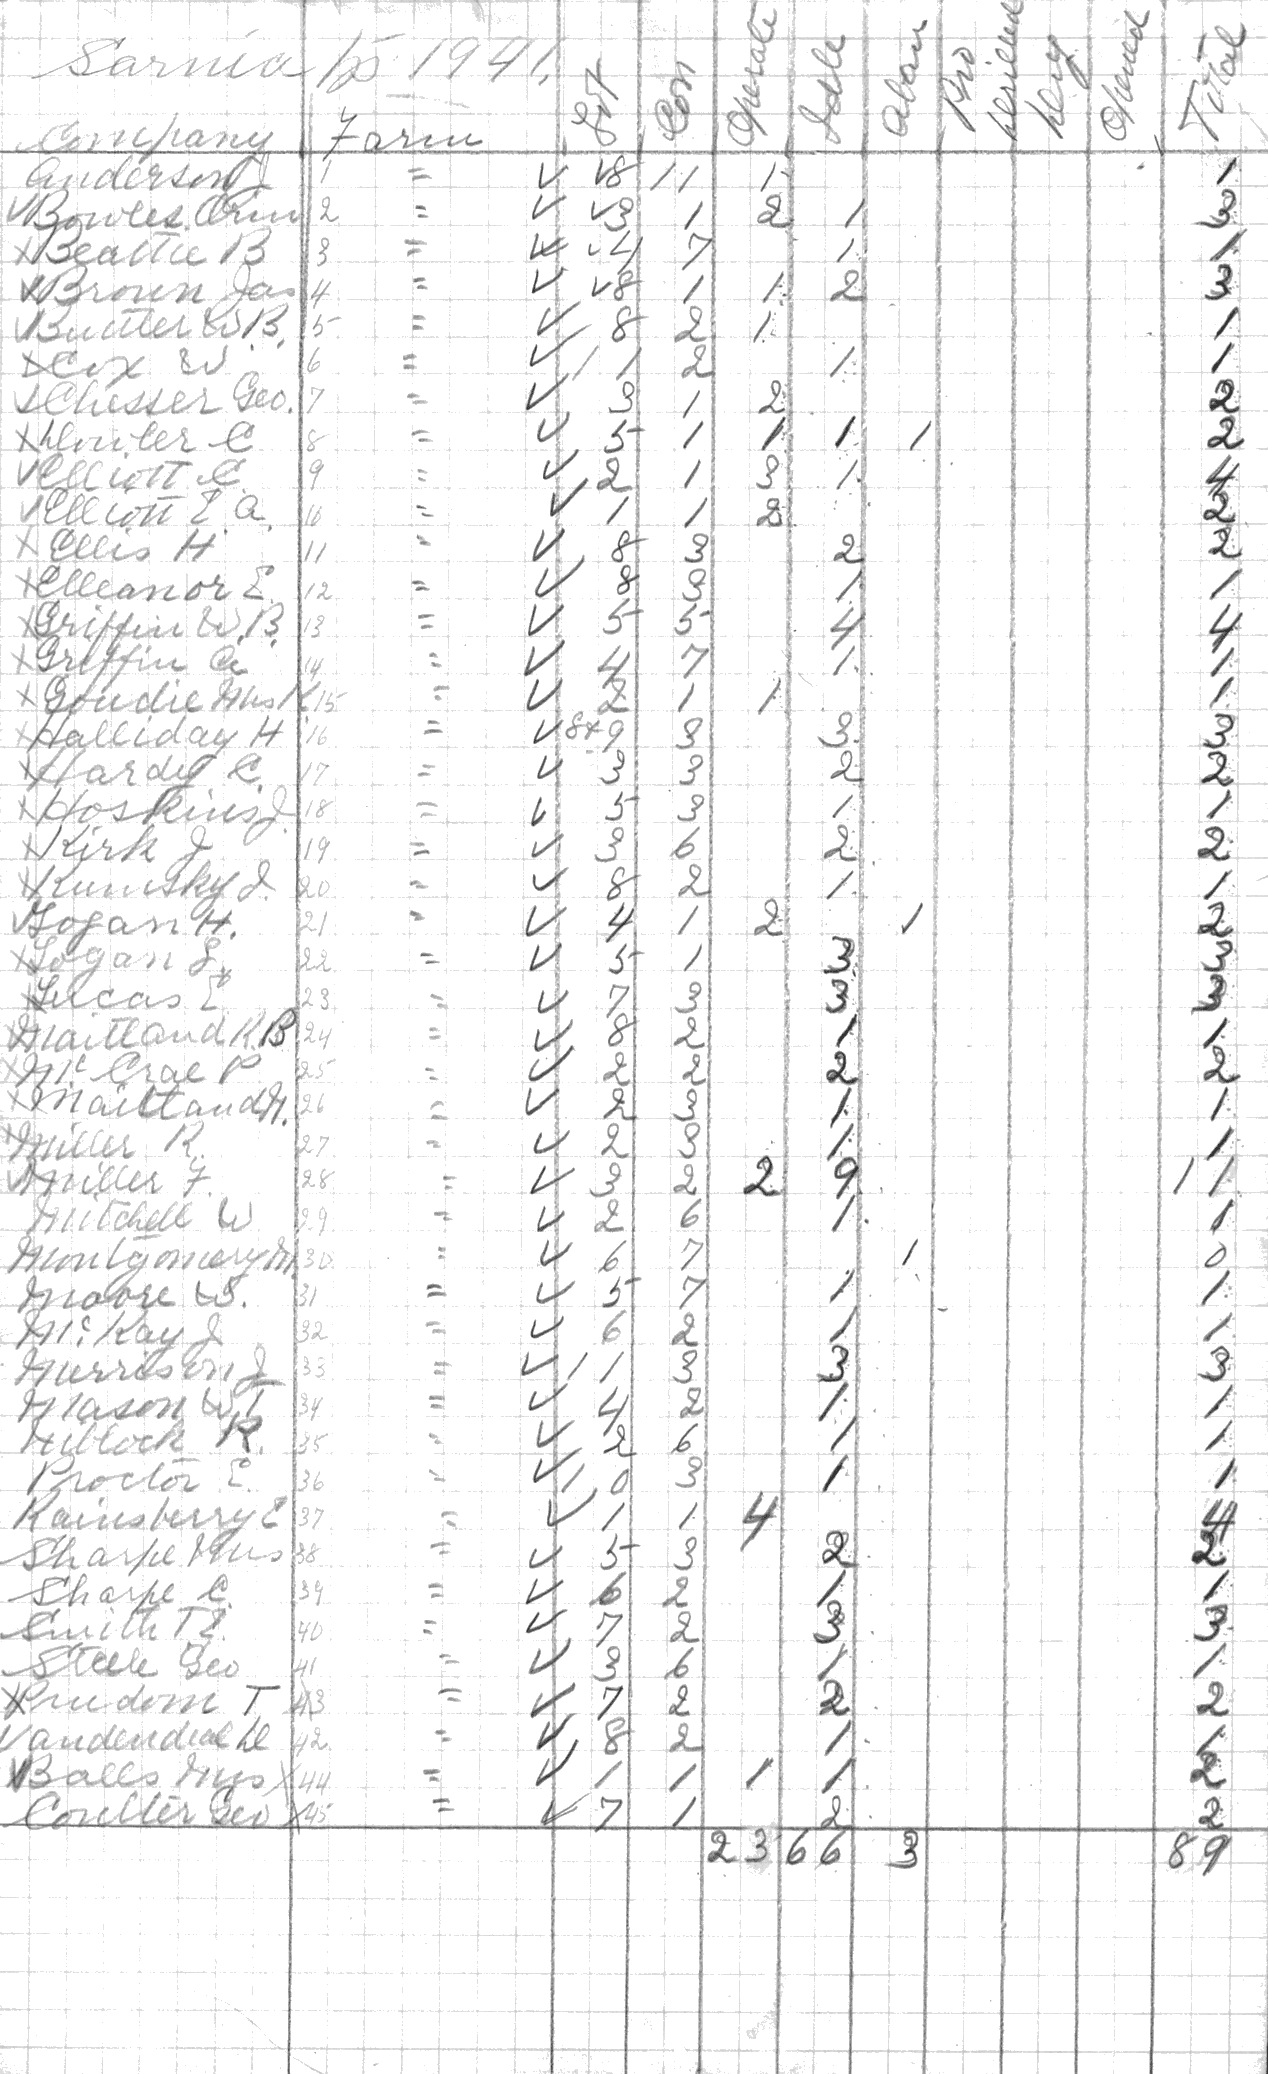 Sarnia Tp 1941.
Company Farm Lot Con Operate Idle Aban Pro Drilled Being Opened Total
Anderson J 1 " ✓ ✓8 11 1 1
✓Bowles Orin 2 " ✓ ✓3 1 2 1 3
×Beattie B 3 " ✓ ✓4 7 1 1
×Brown Jas 4 " ✓ ✓8 1 1 2 3
✓Butler W.B. 5 " ✓ 8 2 1 1
×Cox W 6 " ✓ 11 2 1 1
×Chesser Geo. 7 " ✓ 3 1 2 2
× C 8 " ✓ 5 1 1 1 1 2
✓Elliott C. 9 " ✓ 2 1 3 1 4
✓Elliott E.A. 10 " ✓ 1 1 2 2
×Ellis H 11 " ✓ 8 3 2 2
×Elleanor E. 12 " ✓ 8 3 1 1
×Griffin W.B. 13 " ✓ 5 5 4 4
×Griffin A 14 " ✓ 4 7 1 1
×Goudie Mrs K 15 " ✓ 2 1 1 1
×Halliday H 16 " ✓ 8+9 3 3 3
×Hardy C. 17 " ✓ 3 3 2 2
×Hoskins J. 18 " ✓ 5 3 1 1
×Kirk J 19 " ✓ 3 6 2 2
×Kumsky J. 20 " ✓ 8 2 1 1
✓Logan H. 21 " ✓ 4 1 2 1 2
×Logan L. 22 " ✓ 5 1 3 3
×Lucas E 23 " ✓ 7 3 3 3
×Maitland R.B 24 " ✓ 8 2 1 1
×Mc Crae P 25 " ✓ 2 2 2 2
×Maitland M. 26 " ✓ 2 3 1 1
×Miller R. 27 " ✓ 2 3 1 1
✓Miller F. 28 " ✓ 3 2 2 9 11
Mitchell W 29 " ✓ 2 6 1 1
Montgomery M. 30 " ✓ 6 7 1 0
Moore W. 31 " ✓ 5 7 1 1
McKay J 32 " ✓ 6 2 1 1
Morrison J 33 " ✓ 11 3 3 3
Mason W.T 34 " ✓ 4 2 1 1
R. 35 " ✓ 2 6 1 1
Proctor E. 36 " ✓ 10 3 1 1
Rainsberry E 37 " ✓ 1 1 4 4
Sharpe Mrs 38 " ✓ 5 3 2 2
Sharpe C. 39 " ✓ 6 2 1 1
Smith T.E. 40 " ✓ 7 2 3 3
Steele Geo 41 " ✓ 3 6 1 1
×Prudom T 43 " ✓ 7 2 2 2
D 42 " ✓ 8 2 1 1
✓Balls Mrs × 44 " ✓ 1 1 1 1 2
Coulter Geo × 45 " ✓ 7 1 2 2
23 66 3 89